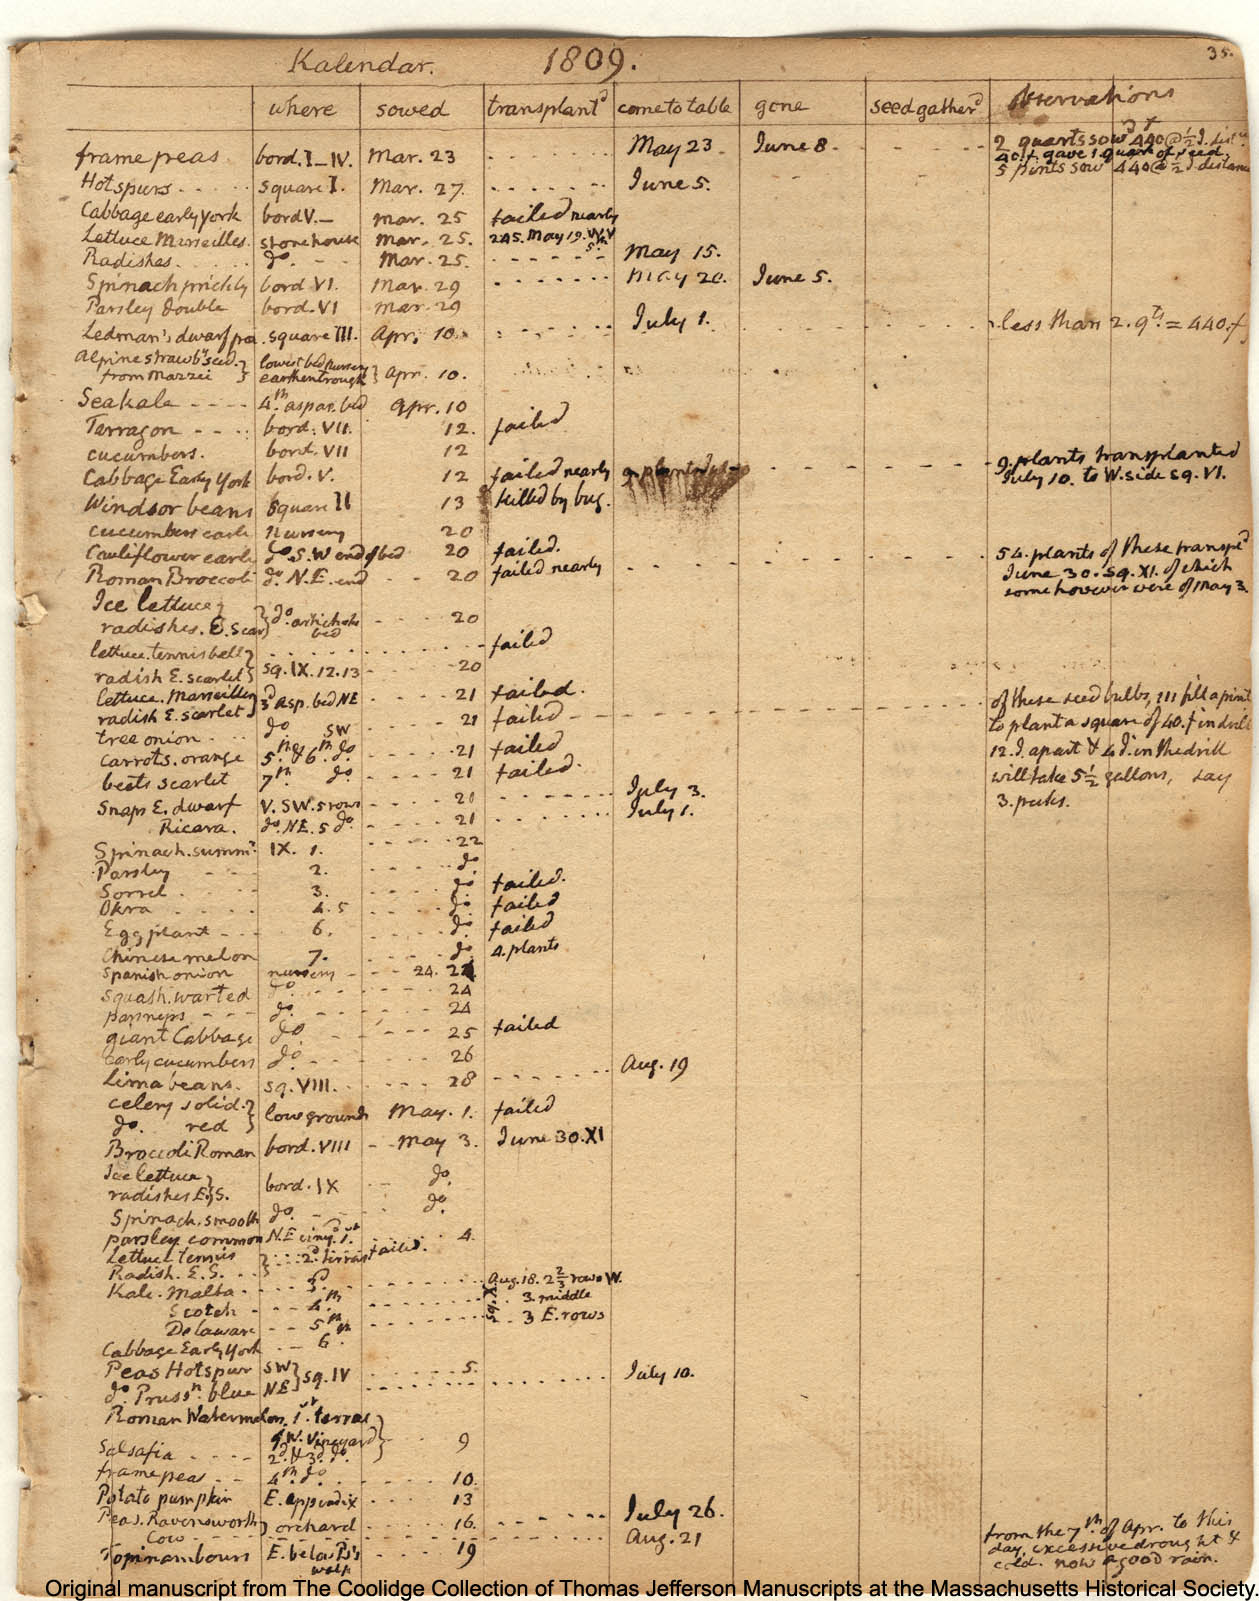 35.
Kalendar. 1809.
where sowed transplantd come to table gone seed gatherd observations
frame peas bord. I_IV. Mar. 23 May 23 June 8. 2 quarts sowd 440 @ ½ I. distce
40.f. gave 1. quart of seed.
Hotspurs square I. Mar. 27. June 5. 5 pints sow 440 @ ½ I distance
Cabbage early York bord V._ Mar. 25 failed nearly
Lettuce Marseilles. stone house Mar. 25. 245. May 19. W. V
Radishes do. Mar. 25. May 15.
Spinach prickly bord VI. Mar. 29 May 20. June 5.
Parsley double bord. VI Mar. 29
Ledman's dwarf pea. square III. Apr. 10. July 1. less than 2. qts. = 440.f
Alpine strawb. seed. } lowest bed nursery }
from Mazzei } earthen trough } Apr. 10.
Seakale 4th. aspar. bed Apr. 10
Tarragon bord. VII. 12. failed
cucumbers. bord. VII 12
Cabbage Early York bord. V. 12 failed nearly 9. plants transplanted
July 10. to W. side sq. VI.
Windsor beans Square II 13 killed by bug.
cucumbers earl. nursery 20
Cauliflower earl. do. S.W end of bed 20 failed.
Roman Broccoli do. N.E. end 20 failed nearly 54. plants of these transpd
June 30. sq. XI. of which
some however were of May 3.
Ice lettuce }
radishes. E. Scar } do. artichoke bed 20
lettuce. tennisball } failed
radish E. scarlet } sq. IX. 12. 13 20
lettuce. Marseilles }
radish E. scarlet } 3d asp. bed NE 21 failed.
tree onion do SW 21 failed of these seed bulbs, 111 fill a pint
to plant a square of 40.f in drills
12. I. apart & 4 I. in the drill
will take 5½ gallons, say
3. pecks.
carrots. orange 5th. & 6th do. 21 failed
beets scarlet 7th do 21 failed.
Snaps E. dwarf V. SW. 5 rows 21 July 3.
Ricara. do. NE. 5 do. 21 July 1.
Spinach. summr. IX. 1. 22
Parsley 2. do
Sorrel 3. do failed.
Okra 4. 5 do. failed
Egg plant 6. do. failed
Chinese melon 7. do. 4. plants
Spanish onion nursery 24.
squash. warted do. 24
parsneps do. 24
giant Cabbage do 25 failed
early cucumbers do. 26
Lima beans. sq. VIII. 28 Aug. 19
celery solid. }
do. red } low grounds May. 1. failed
Broccoli Roman bord. VIII May 3. June 30. XI
Ice lettuce }
radishes E. S. } bord. IX do.
Spinach. smooth do. do.
parsley common N.E vinyd. 1st 4.
Lettuce tennis }
Radish. E.S. } 2d. terras failed.
Kale. Malta 3d. Aug. 18. 2⅔ rows W.
Scotch 4th sq. X. 3. middle
Delaware 5th 3 E. rows
Cabbage Early York 6th
Peas Hotspur SW }
do Prussn. blue NE } sq. IV 5. July 10.
Roman Watermelon. 1st. terras }
S.W. Vineyard }
Salsafia 2d. & 3d. do. } 9
frame peas 4th. do. 10.
Potato pumpkin E. appendix 13
Peas. Ravensworth } orchard 16. July 26.
Cow Aug. 21
Topinambours E. belo. Ps's walk 19 from the 7th. of Apr. to this
day, excessive drought &
cold. now a good rain.
Original manuscript from The Coolidge Collection of Thomas Jefferson Manuscripts at the Massachusetts Historical Society.